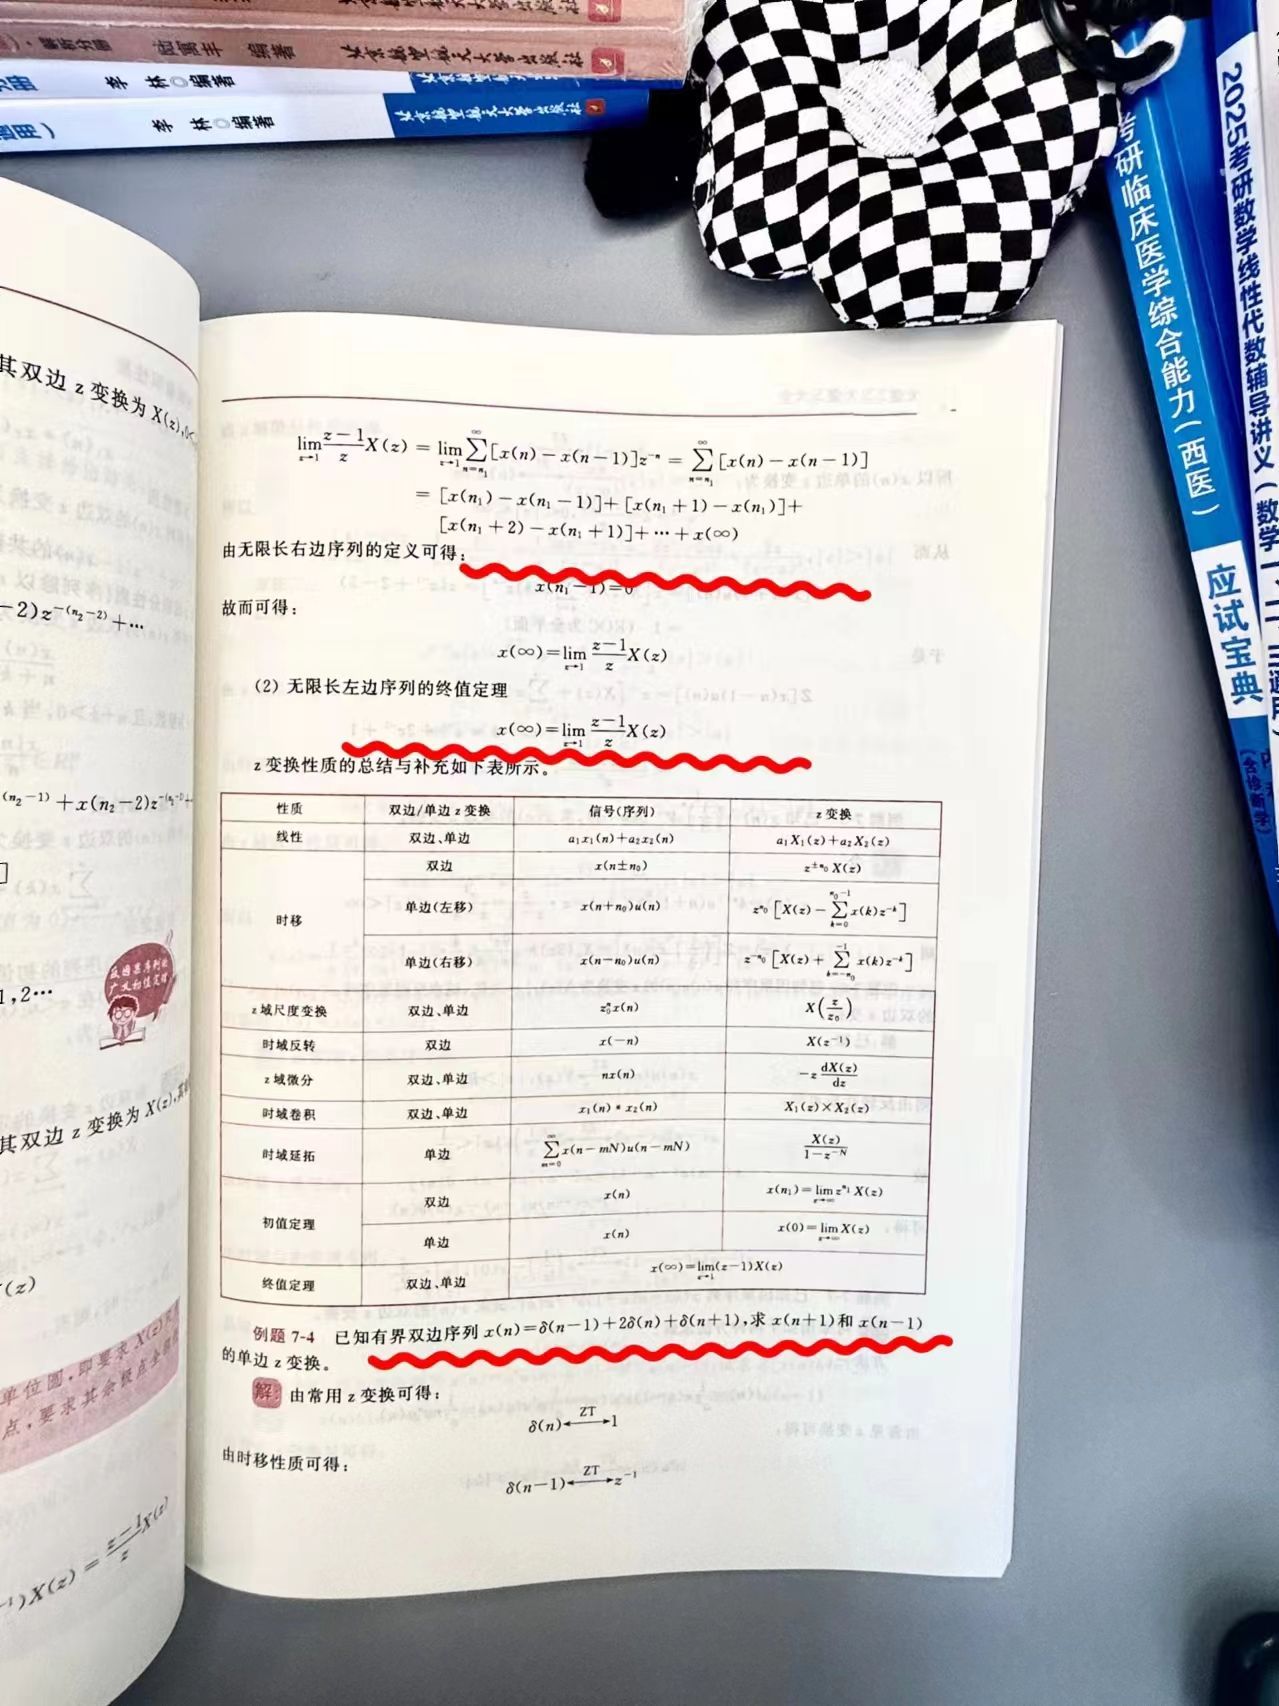 李 林 ◎编著
李 林 ◎编著
北京航空航天大学出版社
通用)
考研临床医学综合能力(西医)
应试宝典
2025考研数学线性代数辅导讲义(数学一、二、三通用)
其双边 z 变换为 X(z),
-2)z^{-(n₂-2)}+…
1,2…
其双边 z 变换为 X(z),其
(z)
单位圆,即要求 X(z)
点,要求其余极点全
X(z) = \frac{z-1}{z}X(z)
\lim_{z→1}\frac{z-1}{z}X(z) = \lim_{z→1}\sum_{n=n₁}^{∞}[x(n)-x(n-1)]z^{-n} = \sum_{n=n₁}^{∞}[x(n)-x(n-1)]
= [x(n₁)-x(n₁-1)]+[x(n₁+1)-x(n₁)]+
[x(n₁+2)-x(n₁+1)]+…+x(∞)
由无限长右边序列的定义可得:
x(n₁-1)=0
故而可得:
x(∞)=\lim_{z→1}\frac{z-1}{z}X(z)
(2) 无限长左边序列的终值定理
x(∞)=\lim_{z→1}\frac{z-1}{z}X(z)
z 变换性质的总结与补充如下表所示。
性质 双边/单边 z 变换 信号(序列) z 变换
线性 双边、单边 a₁x₁(n)+a₂x₂(n) a₁X₁(z)+a₂X₂(z)
时移 双边 x(n±n₀) z^{±n₀}X(z)
单边(左移) x(n+n₀)u(n) z^{n₀}[X(z)-\sum_{k=0}^{n₀-1}x(k)z^{-k}]
单边(右移) x(n-n₀)u(n) z^{-n₀}[X(z)+\sum_{k=-n₀}^{-1}x(k)z^{-k}]
z 域尺度变换 双边、单边 z₀ⁿx(n) X(\frac{z}{z₀})
时域反转 双边 x(-n) X(z⁻¹)
z 域微分 双边、单边 nx(n) -z\frac{dX(z)}{dz}
时域卷积 双边、单边 x₁(n)*x₂(n) X₁(z)×X₂(z)
时域延拓 单边 \sum_{m=0}^{∞}x(n-mN)u(n-mN) \frac{X(z)}{1-z^{-N}}
初值定理 双边 x(n) x(n₁)=\lim_{z→∞}z^{n₁}X(z)
单边 x(n) x(0)=\lim_{z→∞}X(z)
终值定理 双边、单边 x(∞)=\lim_{z→1}(z-1)X(z)
例题 7-4 已知有界双边序列 x(n)=δ(n-1)+2δ(n)+δ(n+1),求 x(n+1)和 x(n-1)
的单边 z 变换。
解: 由常用 z 变换可得:
δ(n)⟷^{ZT}1
由时移性质可得:
δ(n-1)⟷^{ZT}z⁻¹